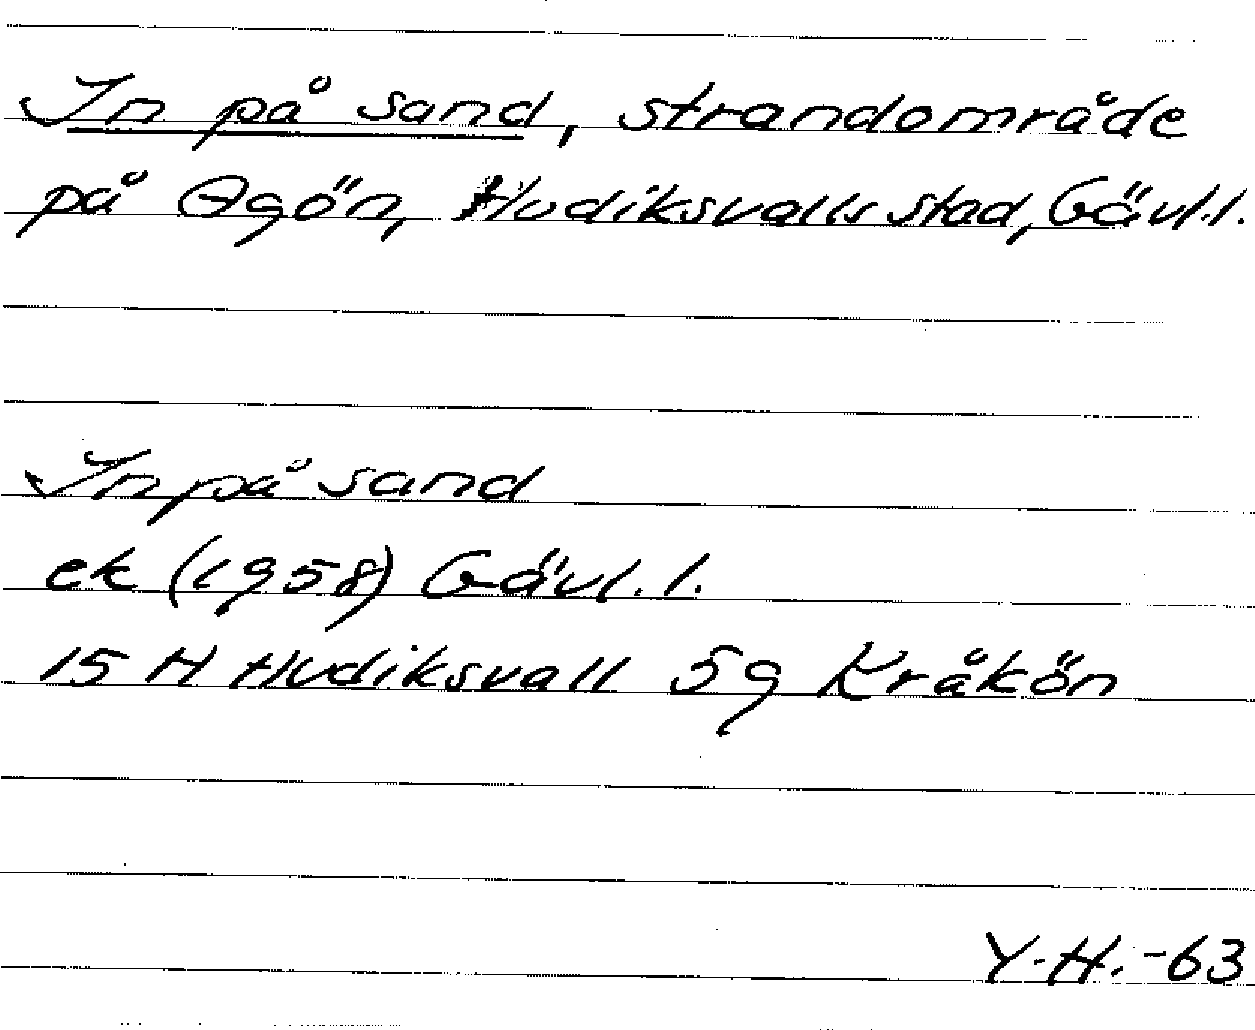 In på sand, strandområde
på Agön, Hudiksvalls stad, Gävl.l.
In på sand
ek (1958) Gävl.l.
15 H Hudiksvall 5g Kråkön
Y.H.-63